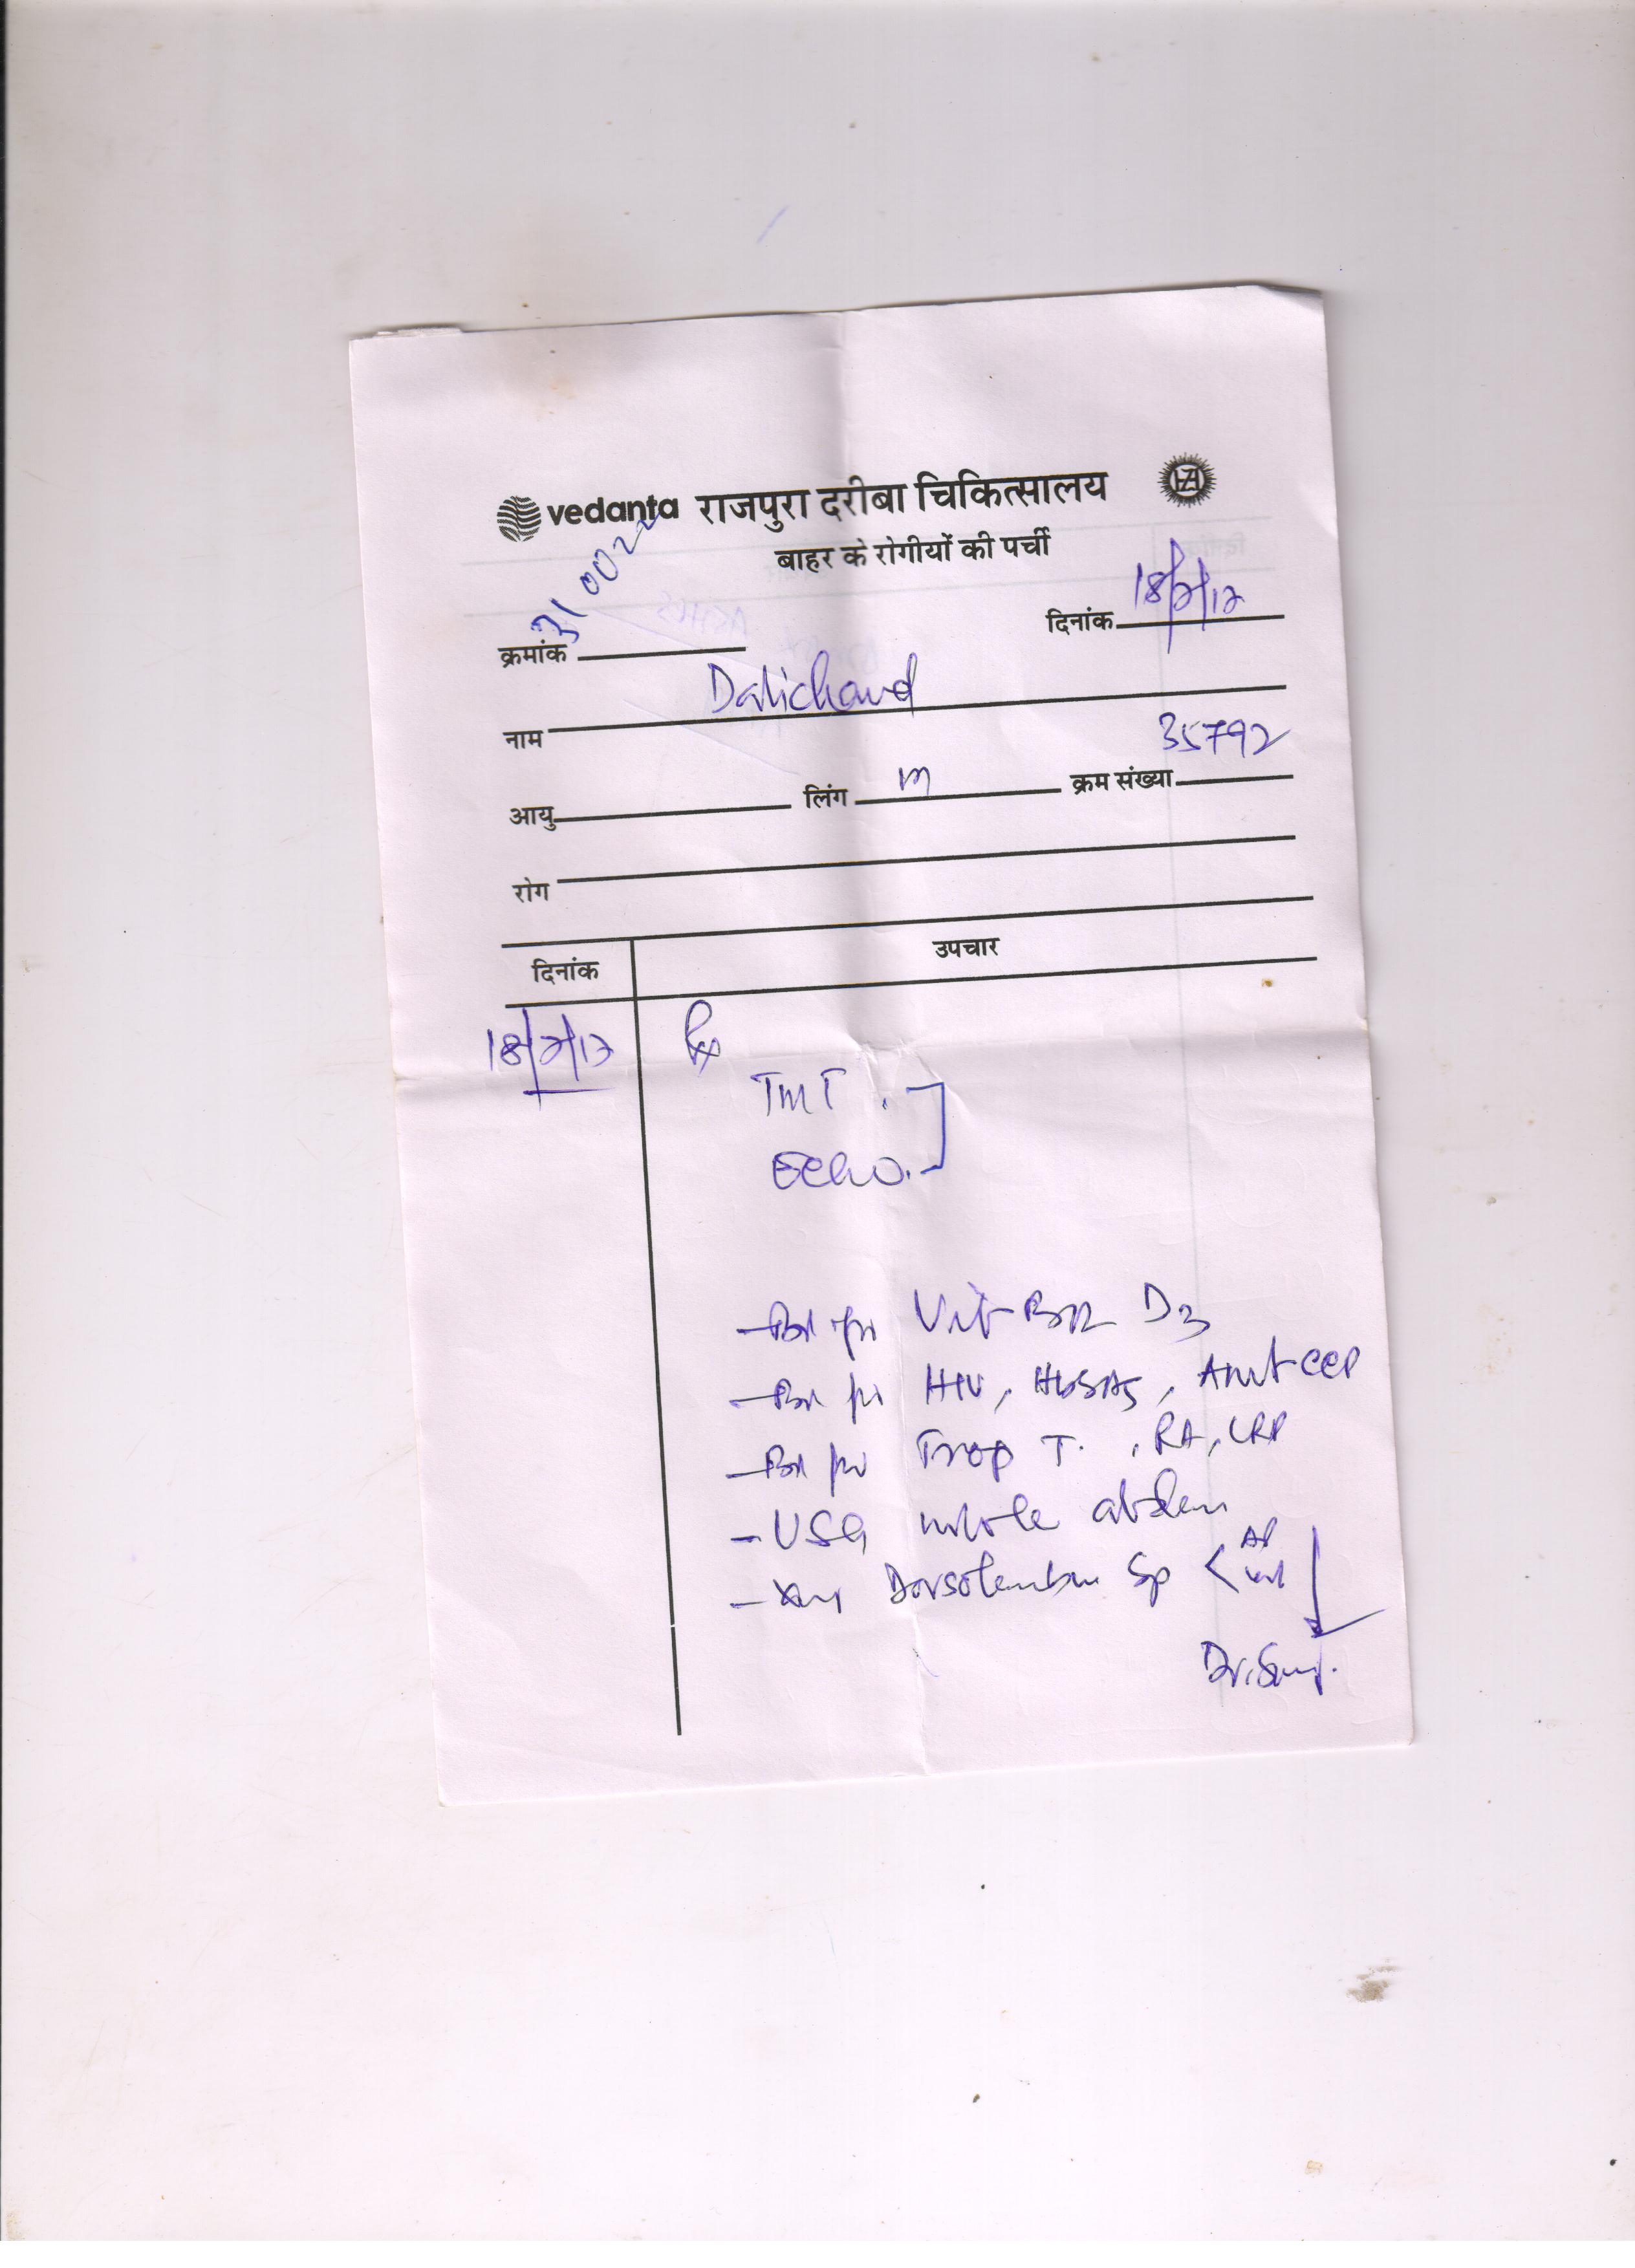 vedanta राजपुरा दरीबा चिकित्सालय
बाहर के रोगीयों की पर्ची
क्रमांक 310022
दिनांक 18/2/12
नाम Dalichand
आयु लिंग m क्रम संख्या 35792
रोग
दिनांक उपचार
18/2/12 Rx
TMT.
Echo.
- Vit B12 D3
- HIV, HbsAg, Anti CCP
- Trop T., RA, CRP
- USG whole abdom
- Xray Dorsolumbar Sp < AP
Dr.